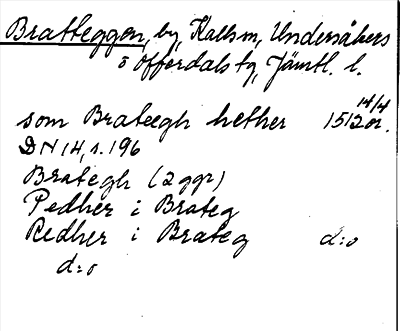 Bratteggen, by, Kalls sn, Undersåkers
o Offerdals tg, Jämtl. l.
14/4
som Brateegh hether 1512 or.
DN 14, s. 196
Brategh (2 ggr)
Pedher i Brateg
Redher i Brateg d:o
d:o